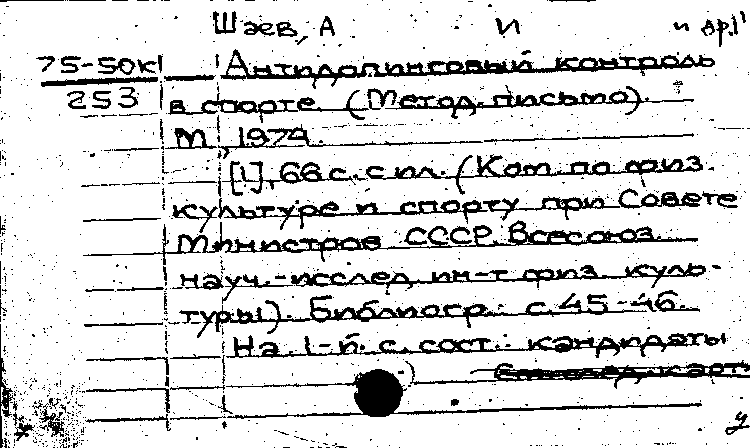 Шаев, А И и др.
75-50к Антидопинговый контроль
253 в спорте. (Метод. письмо).
М., 1974.
[1], 66 с. с ил. (Ком. по физ.
культуре и спорту при Совете
Министров СССР. Всесоюз.
науч.-исслед. ин-т физ. куль-
туры). Библиогр.: с. 45-46.
На 1-й с. сост.: кандидаты
См. след. карт.